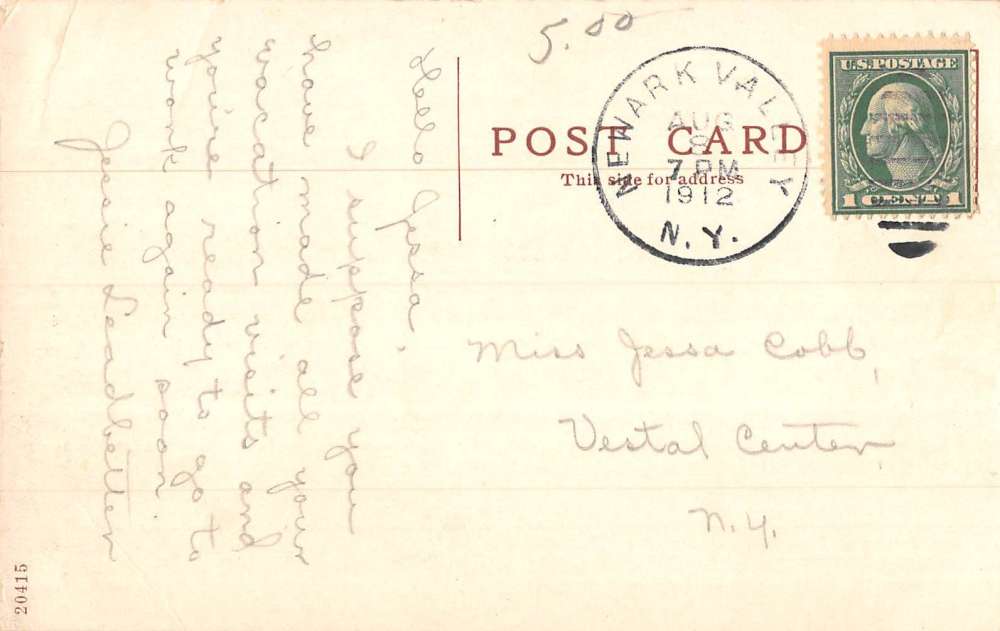 5.00
NEWARK VALLEY
AUG
8
7 PM
1912
N.Y.
U.S. POSTAGE
1 CENT 1
POST CARD
This side for address
Hello Jessa,
I suppose you
have made all your
vacation visits and
you're ready to go to
work again soon.
Jessie Leadbetter
Miss Jessa Cobb,
Vestal Center,
N.Y.
20415